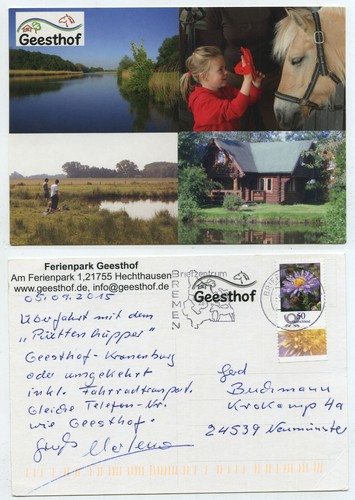 Geesthof
Ferienpark Geesthof
Am Ferienpark 1,21755 Hechthausen
www.geesthof.de, info@geesthof.de
Briefzentrum
BREMEN
Geesthof
50
05.09.2015
Überfahrt mit dem
"Püttenhüpper"
Geesthof-Kranenburg
oder umgekehrt
inkl. Fahrradtransport.
Gleiche Telefon-Nr.
wie Geesthof.
Gruß Marlene
Gerd
Buchmann
Krokamp 4a
24539 Neumünster